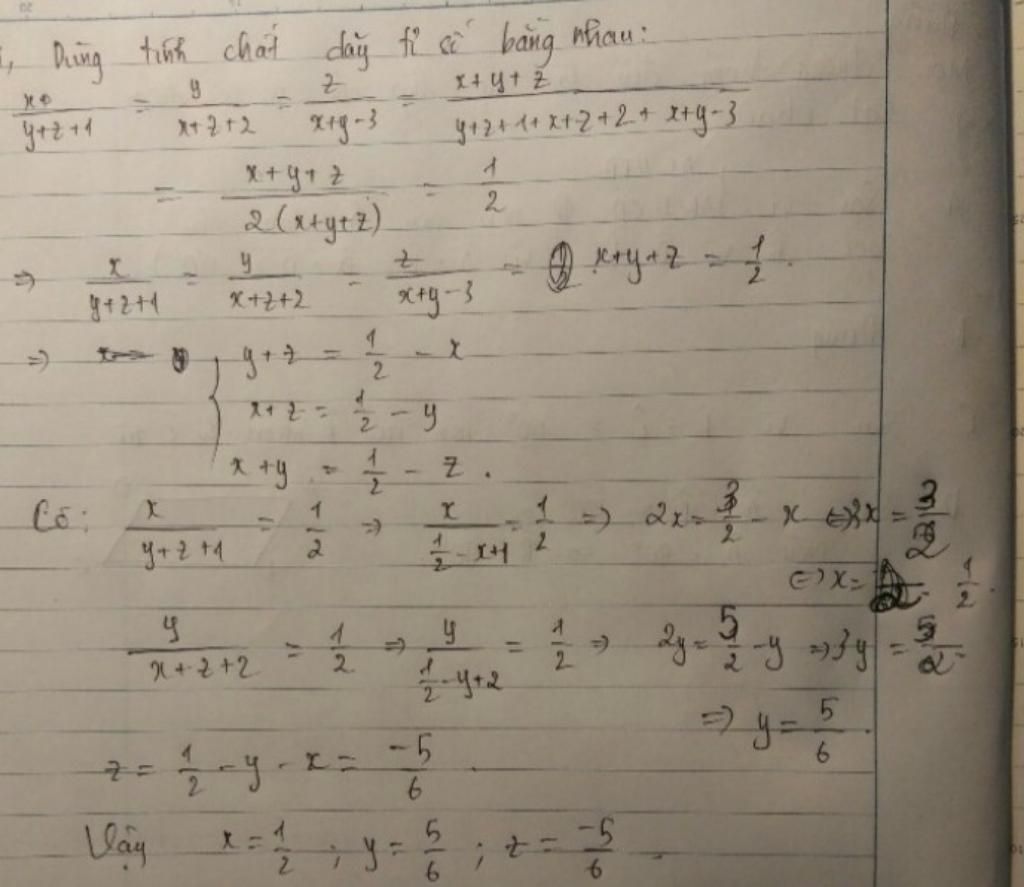 1, Dùng tính chất dãy tỉ số bằng nhau:
x/(y+z+1) = y/(x+z+2) = z/(x+y-3) = (x+y+z)/(y+z+1+x+z+2+x+y-3)
= (x+y+z)/(2(x+y+z)) = 1/2
=> x/(y+z+1) = y/(x+z+2) = z/(x+y-3) = x+y+z = 1/2.
=> { y+z = 1/2 - x
x+z = 1/2 - y
x+y = 1/2 - z.
Có: x/(y+z+1) = 1/2 => x/(1/2 - x+1) = 1/2 => 2x = 3/2 - x <=> 3x = 3/2
<=> x = 1/2.
y/(x+z+2) = 1/2 => y/(1/2 - y+2) = 1/2 => 2y = 5/2 - y => 3y = 5/2
=> y = 5/6.
z = 1/2 - y - x = -5/6.
Vậy x = 1/2 ; y = 5/6 ; z = -5/6.